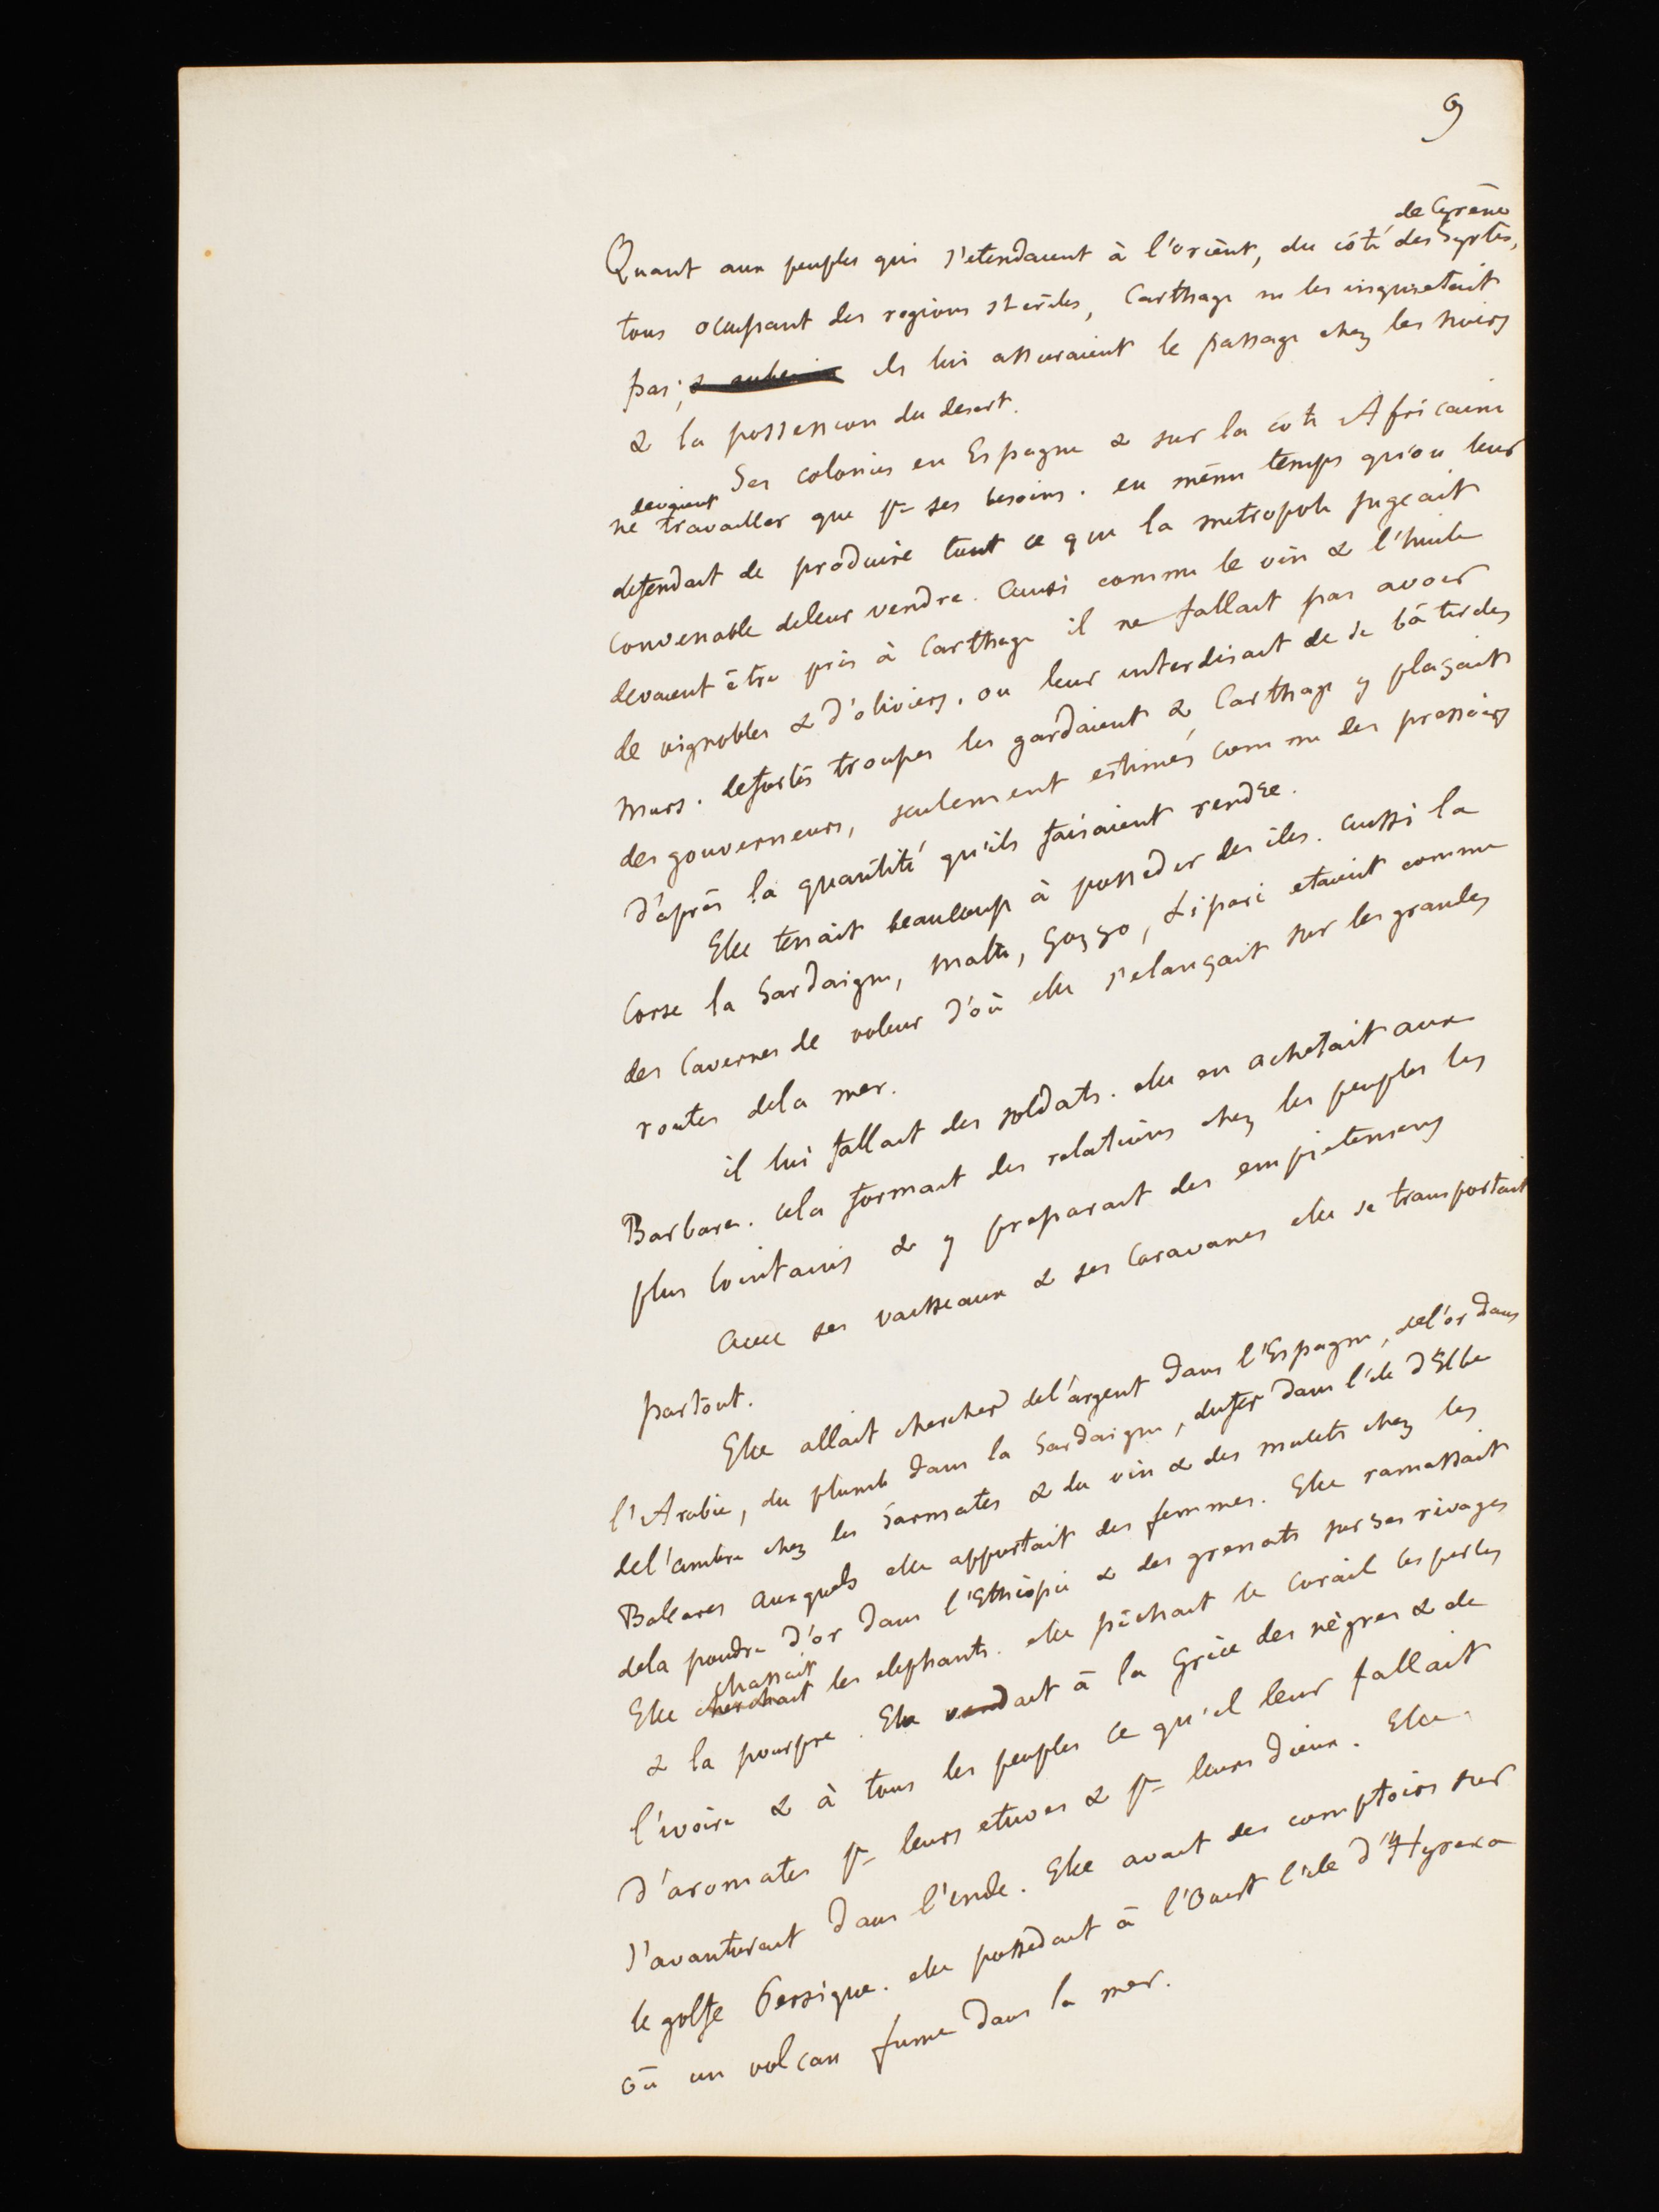 9
de Cyrène
Quant aux peuples qui s'etendaient à l'orient, du côté des Syrtes,
tous occupant des regions steriles, Carthage ne les inquietait
pas; ils lui assuraient le passage chez les noirs
& la possession du desert.
Ses colonies en Espagne & sur la cote Africaine
devaient
ne travailler que pr ses besoins. en même temps qu'on leur
defendait de produire tout ce que la metropole jugeait
convenable de leur vendre. Ainsi comme le vin & l'huile
devaient être pris à Carthage il ne fallait pas avoir
de vignobles & d'oliviers. on leur interdisait de se bâtir des
murs. de fortes troupes les gardaient & Carthage y plaçait
des gouverneurs, seulement estimés comme des pressoirs
d'après la quantité qu'ils faisaient rendre.
Elle tenait beaucoup à posseder des iles. aussi la
Corse la Sardaigne, Malte, Gozzo, Lipari etaient comme
des Cavernes de voleur d'où elle s'elançait sur les grandes
routes de la mer.
il lui fallait des soldats. elle en achetait aux
Barbares. cela formait des relations chez les peuples les
plus lointains & y preparait des empietemens
Avec ses vaisseaux & ses Caravanes elle se transportait
partout.
Elle allait chercher de l'argent dans l'Espagne, de l'or dans
l'Arabie, du plomb dans la Sardaigne, du fer dans l'ile d'Elbe
de l'ambre chez les Sarmates & du vin & des mulets chez les
Baleares auxquels elle apportait des femmes. Elle ramassait
de la poudre d'or dans l'Ethiopie & des grenats sur ses rivages
chassait
Elle cherchait les elephants. elle pêchait le corail les perles
& la pourpre. Elle vendait à la Grèce des nègres & de
l'ivoire & à tous les peuples ce qu'il leur fallait
d'aromates pr leurs etuves & pr leurs dieux. Elle
s'avanturait dans l'inde. Elle avait des comptoirs sur
le golfe Persique. elle possedait à l'Ouest l'ile d'Hyrexa
où un volcan fume dans la mer.